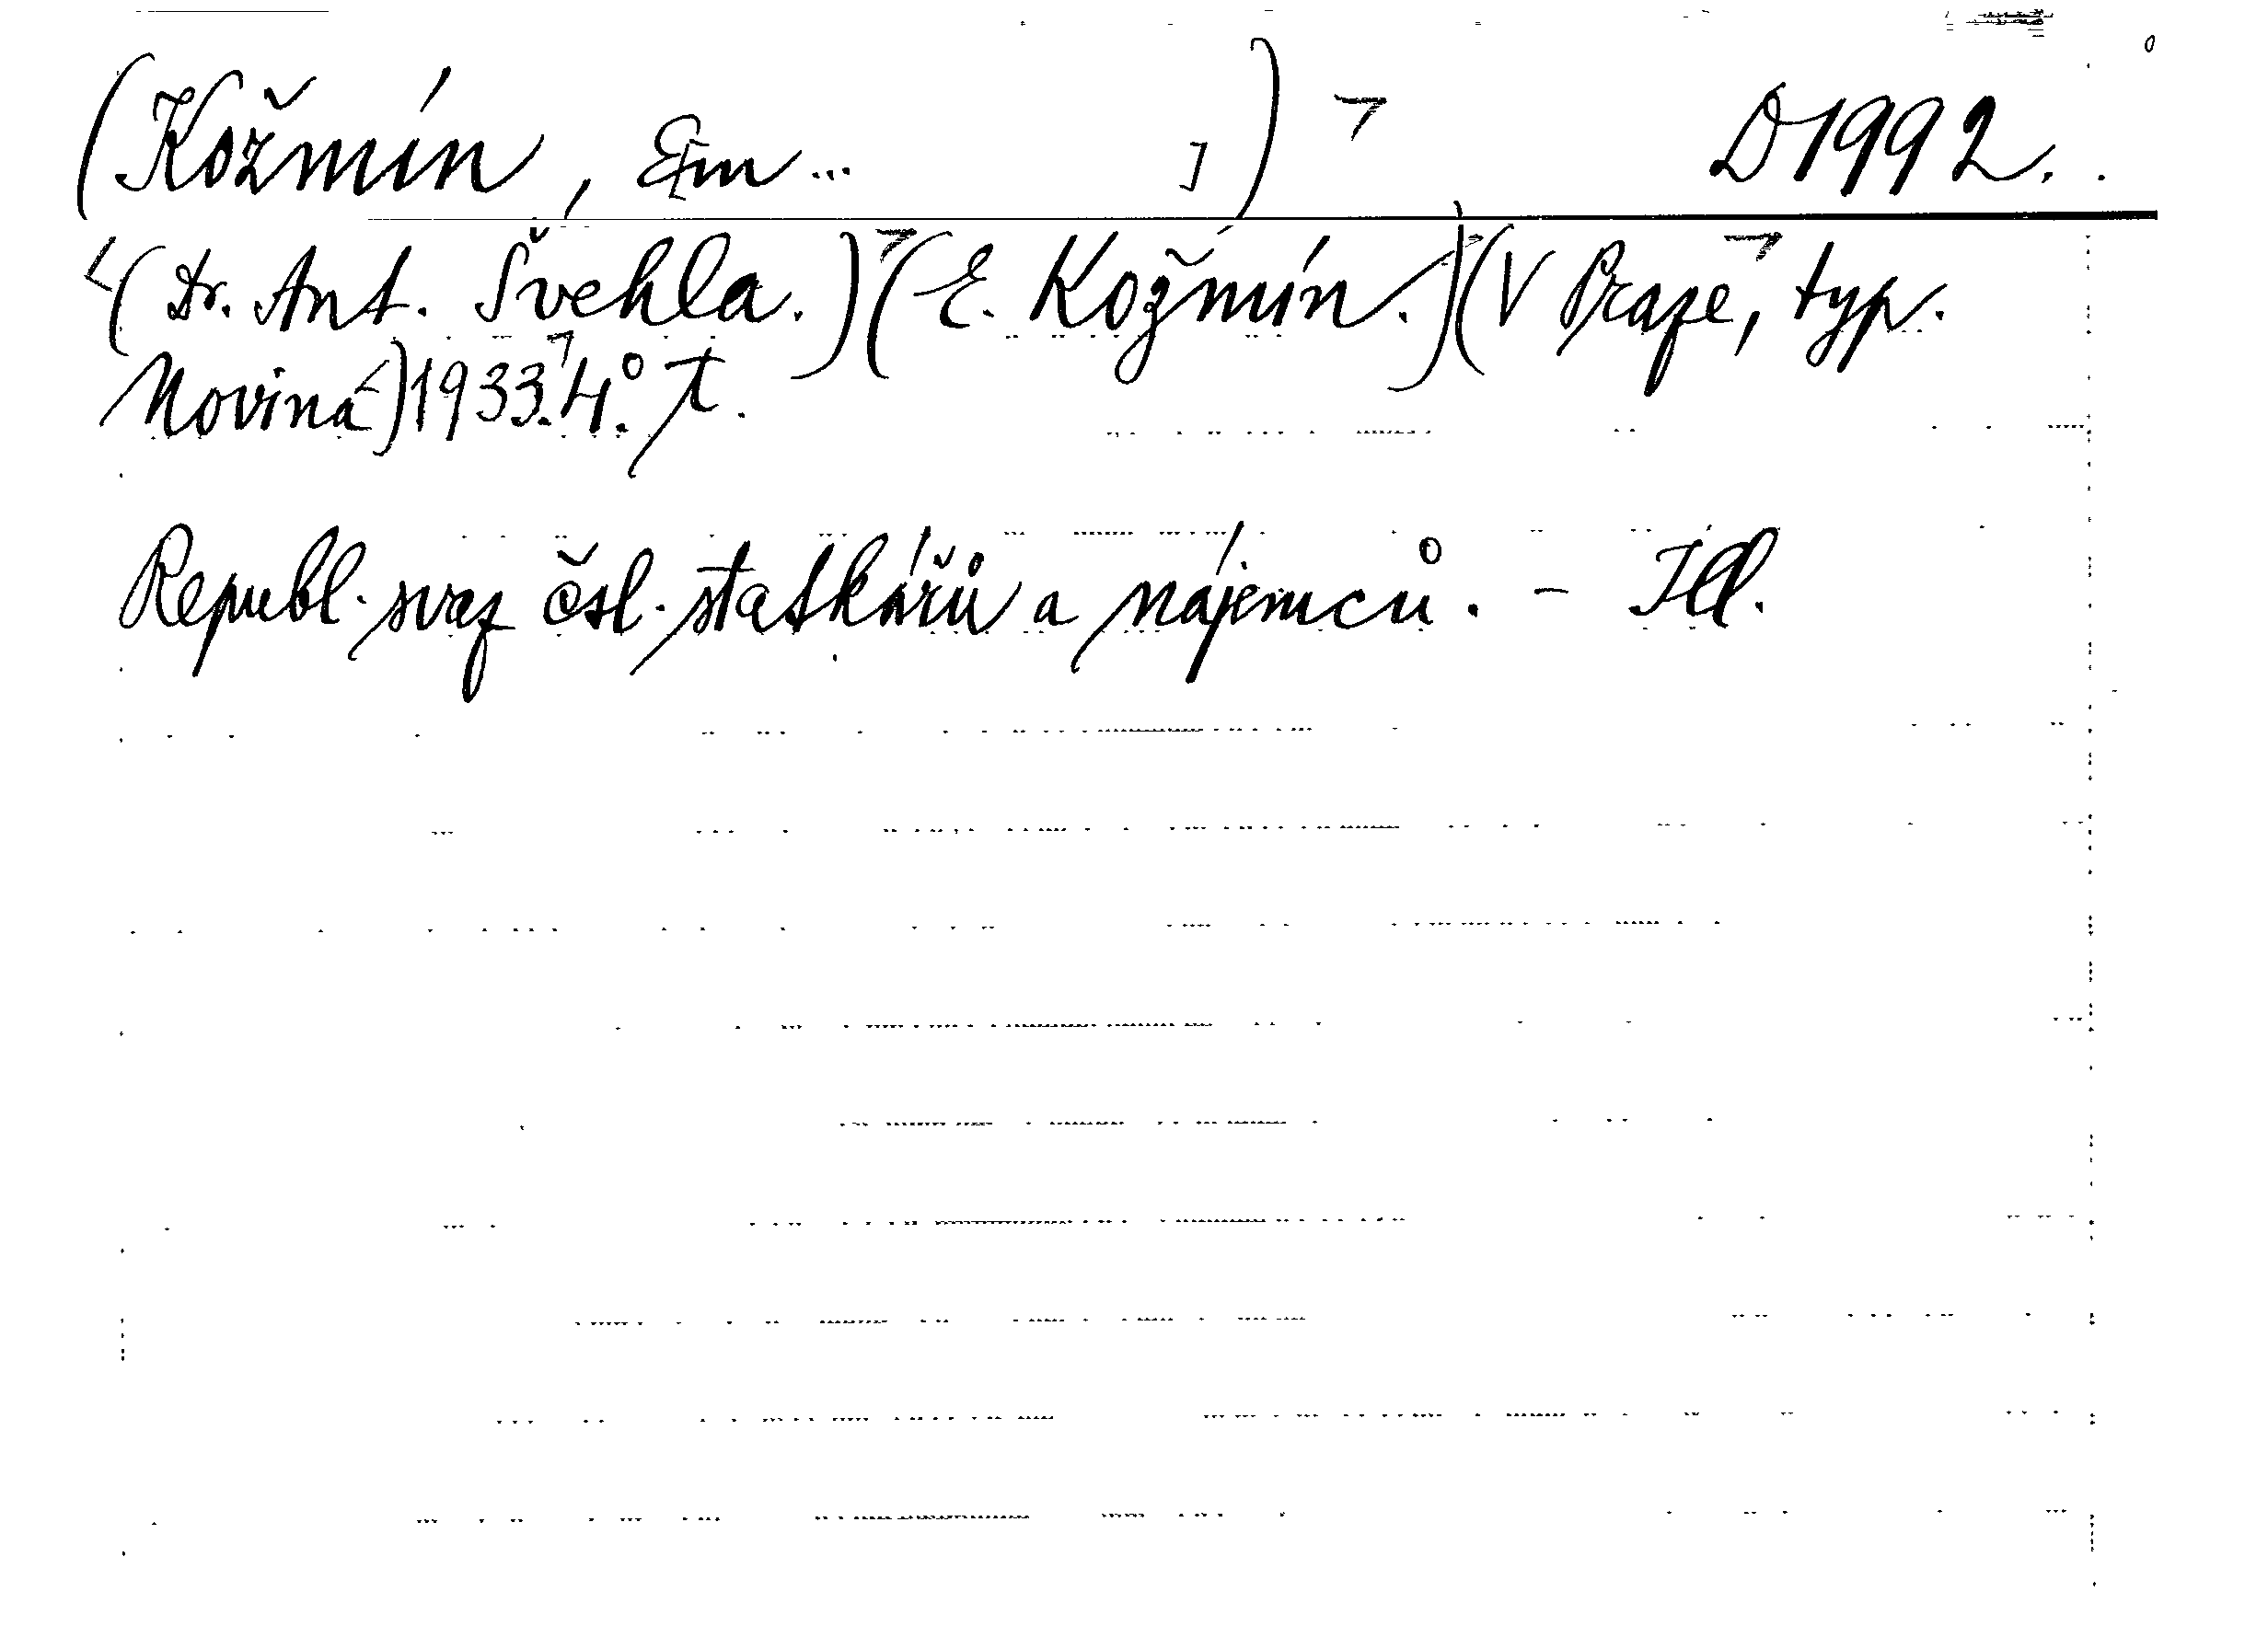 (Kožmín, E[m... ]) D1992.
(Dr. Ant. Švehla.)(E. Kožmín.)(V Praze, typ.
Novina)1933.4.° †.
Republ. svaz čsl. statkářů a nájemců. - Ill.